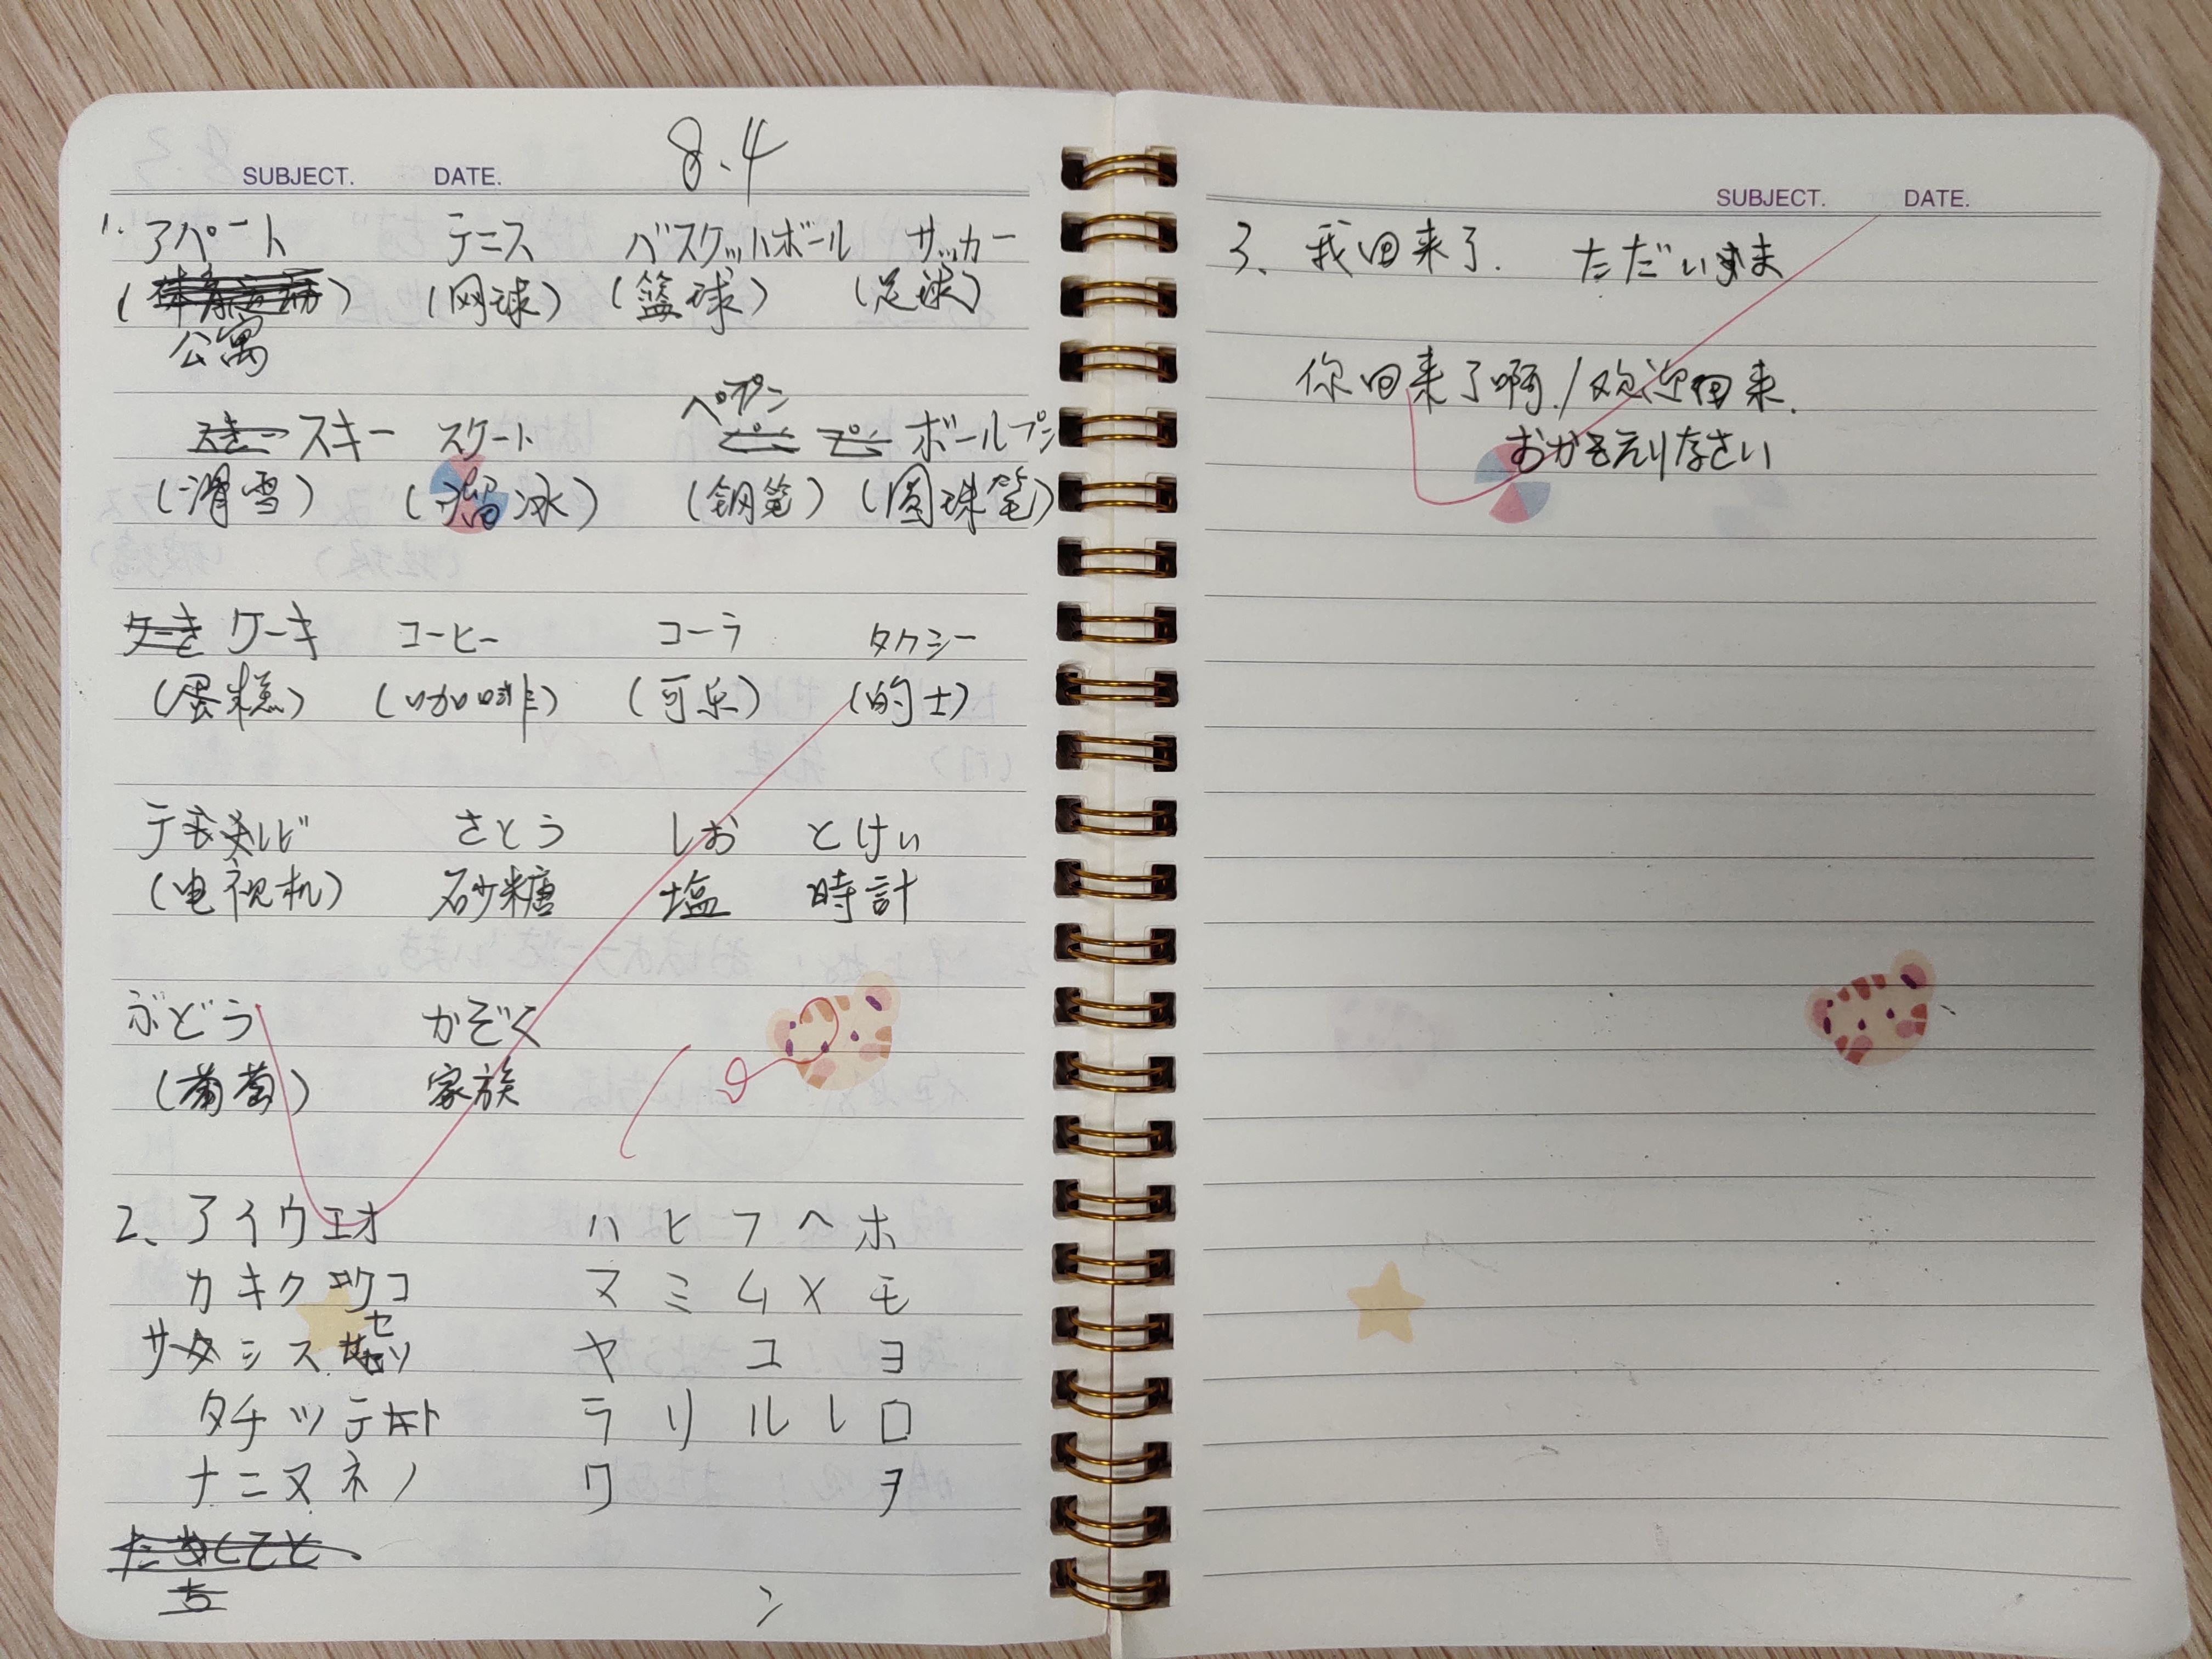 8.4
SUBJECT. DATE.
1. アパート テニス バスケットボール サッカー
( ) (网球) (篮球) (足球)
公寓
ペプン
スキー スケート ボールプン
(滑雪) (溜冰) (钢笔) (圆球笔)
ケーキ コーヒー コーラ タクシー
(蛋糕) (咖啡) (可乐) (的士)
テレビ さとう しお とけい
(电视机) 砂糖 塩 時計
ぶどう かぞく
(葡萄) 家族
2、アイウエオ ハヒフヘホ
カキクケコ マミムメモ
セ
サシスソ ヤ コ ヨ
タチツテト ラリルレロ
ナニヌネノ ワ ヲ
ン
SUBJECT. DATE.
3、我回来了. ただいま
你回来了啊./欢迎回来.
おかえりなさい